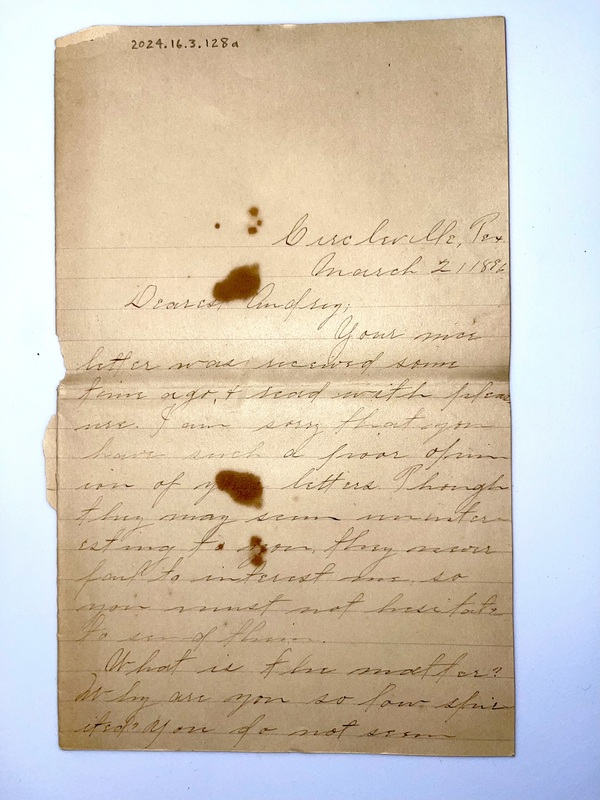 2024.16.3.128a
Circleville, Tex
March 21 1896
Dearest Audrey;
Your nice
letter was received some
time ago, & read with pleas
ure. I am sorry that you
have such a poor opin
ion of your letters. Though
they may seem uninter
esting to you, they never
fail to interest me. so
you must not hesitate
to send them.
What is the matter?
Why are you so low spir
ited? You do not seem